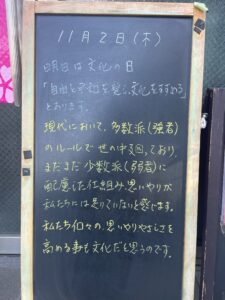 11月2日(木)
明日は文化の日
「自由と平和を愛し、文化をすすめる」
とあります。
現代において、多数派(強者)
のルールで世の中が回っており、
まだまだ少数派(弱者)に
配慮した仕組み、思いやりが
私たちには足りていないと感じます。
私たち個々の、思いやりやさしさを
高める事も文化だと思うのです。